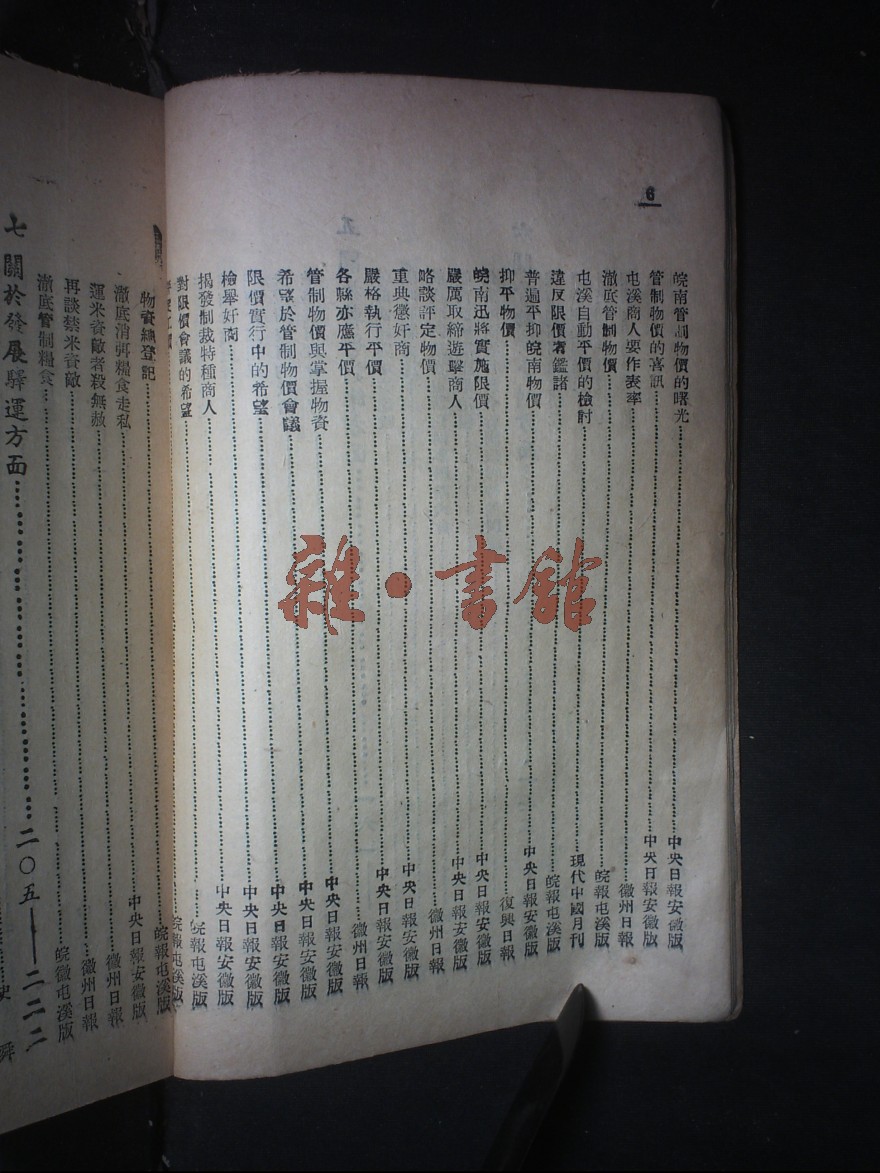 6
皖南管制物價的曙光……中央日報安徽版
管制物價的喜訊……中央日報安徽版
屯溪商人要作表率……徽州日報
澈底管制物價……皖報屯溪版
屯溪自動平價的檢討……現代中國月刊
違反限價者鑑諸……皖報屯溪版
普遍平抑皖南物價……中央日報安徽版
抑平物價……復興日報
皖南迅將實施限價……中央日報安徽版
嚴厲取締遊擊商人……中央日報安徽版
略談評定物價……徽州日報
重典懲奸商……中央日報安徽版
嚴格執行平價……中央日報安徽版
各縣亦應平價……徽州日報
管制物價與掌握物資……中央日報安徽版
希望於管制物價會議……中央日報安徽版
限價實行中的希望……中央日報安徽版
檢舉奸商……中央日報安徽版
揭發制裁特種商人……中央日報安徽版
對限價會議的希望……皖報屯溪版
皖報屯溪版
物資總登記……皖報屯溪版
澈底消弭糧食走私……中央日報安徽版
運米資敵者殺無赦……徽州日報
再談禁米資敵……徽州日報
澈底管制糧食……皖徽屯溪版
七 關於發展驛運方面……二〇五——二二二
史 舜
雜·書館